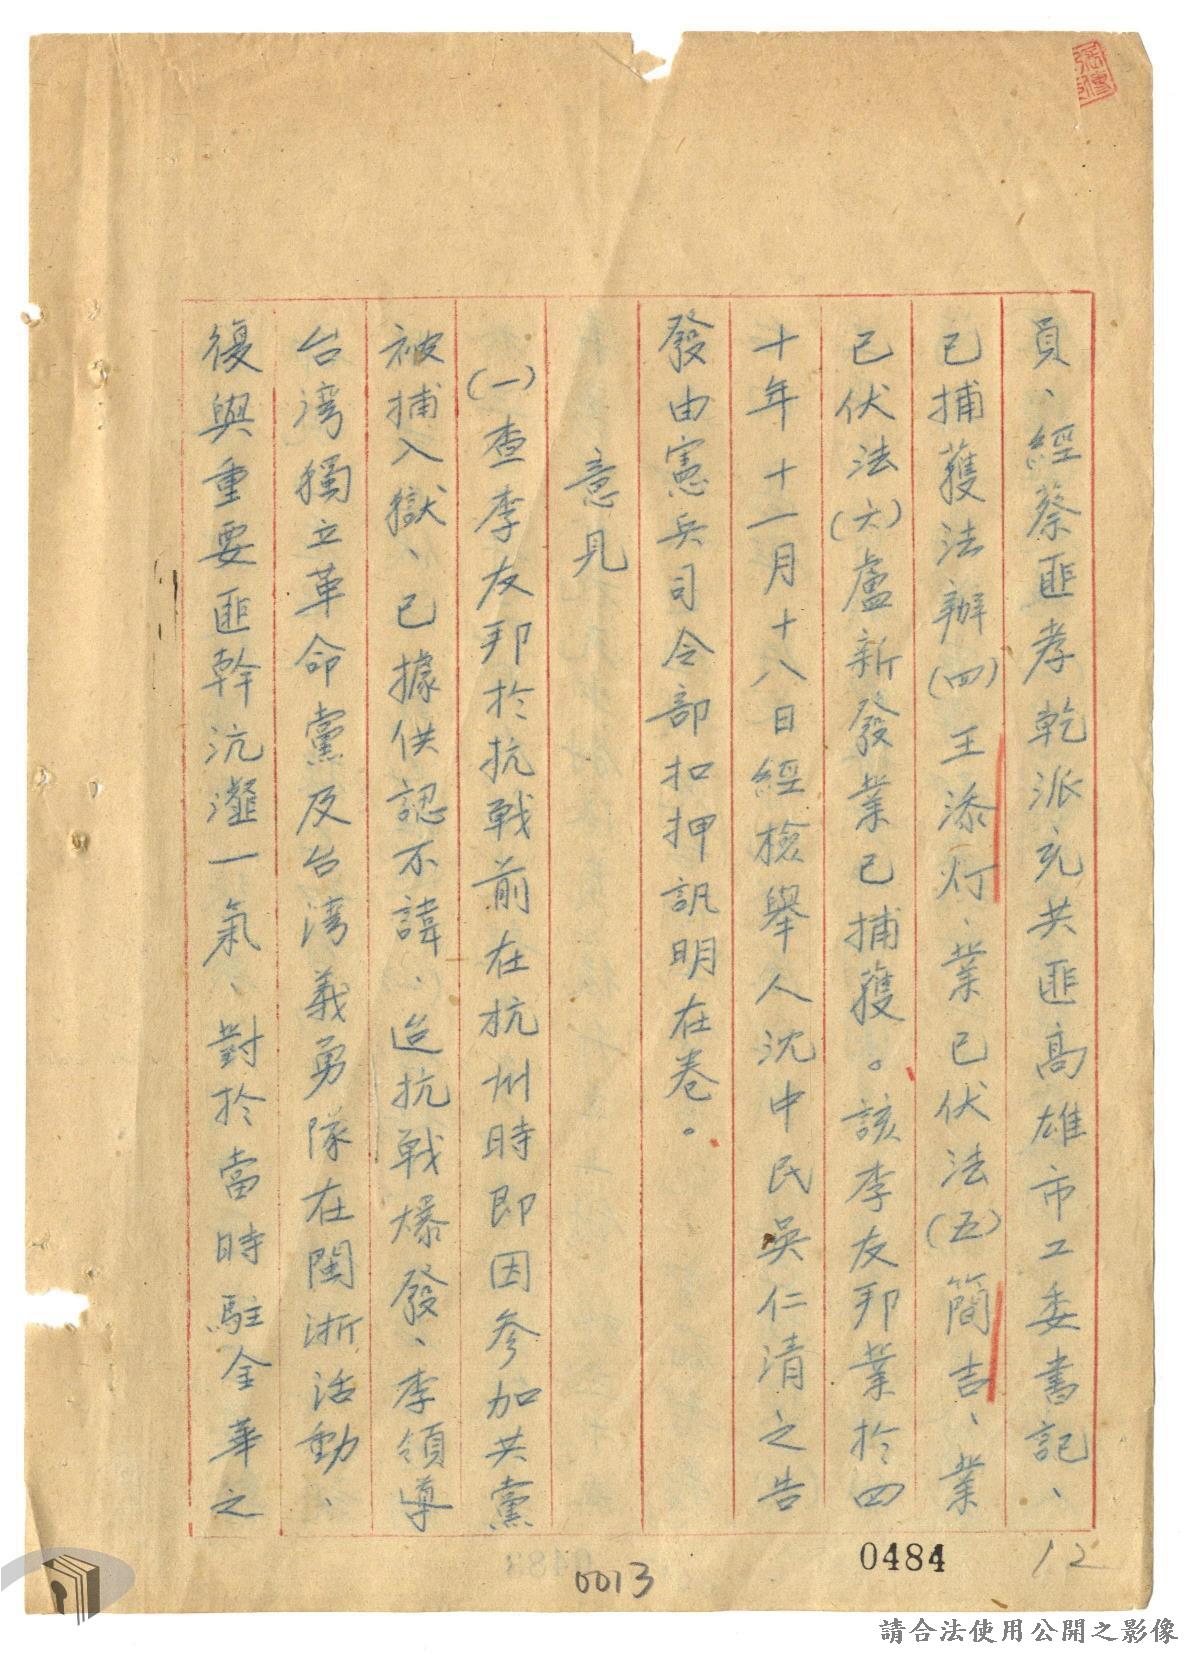 員、經蔡匪孝乾派充共匪高雄市工委書記、
已捕獲法辦(四)王添灯、業已伏法(五)簡吉、業
已伏法(六)盧新發業已捕獲。該李友邦業於四
十年十一月十八日經檢舉人沈中民吳仁清之告
發由憲兵司令部扣押訊明在卷。
意見
(一)查李友邦於抗戰前在杭州時即因參加共黨
被捕入獄、已據供認不諱、迨抗戰爆發、李領導
台湾獨立革命黨及台湾義勇隊在閩浙活動、
復與重要匪幹沆瀣一氣、對於當時駐金華之
0484
12
0013
請合法使用公開之影像